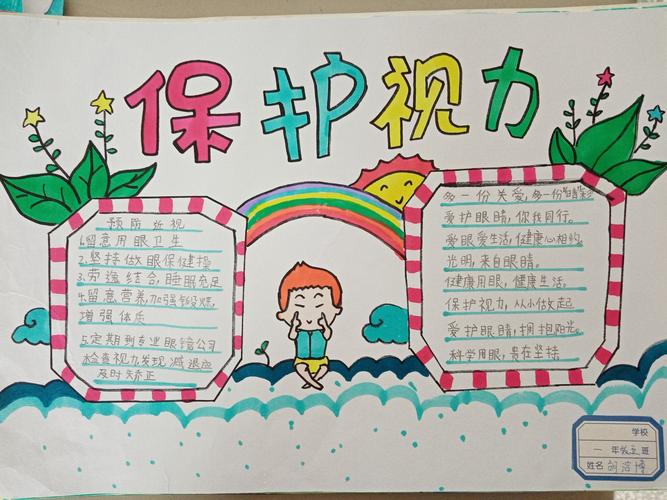 保护视力
预防近视
1.留意用眼卫生
2.坚持做眼保健操
3.劳逸结合,睡眠充足
4.留意营养,加强锻炼,
增强体质
5.定期到专业眼镜公司
检查视力发现减退应
及时矫正
多一份关爱,多一份精彩
爱护眼睛,你我同行。
爱眼爱生活,健康心相约。
光明,来自眼睛。
健康用眼,健康生活。
保护视力,从小做起
爱护眼睛,拥抱阳光。
科学用眼,贵在坚持
学校
一年级 班
姓名